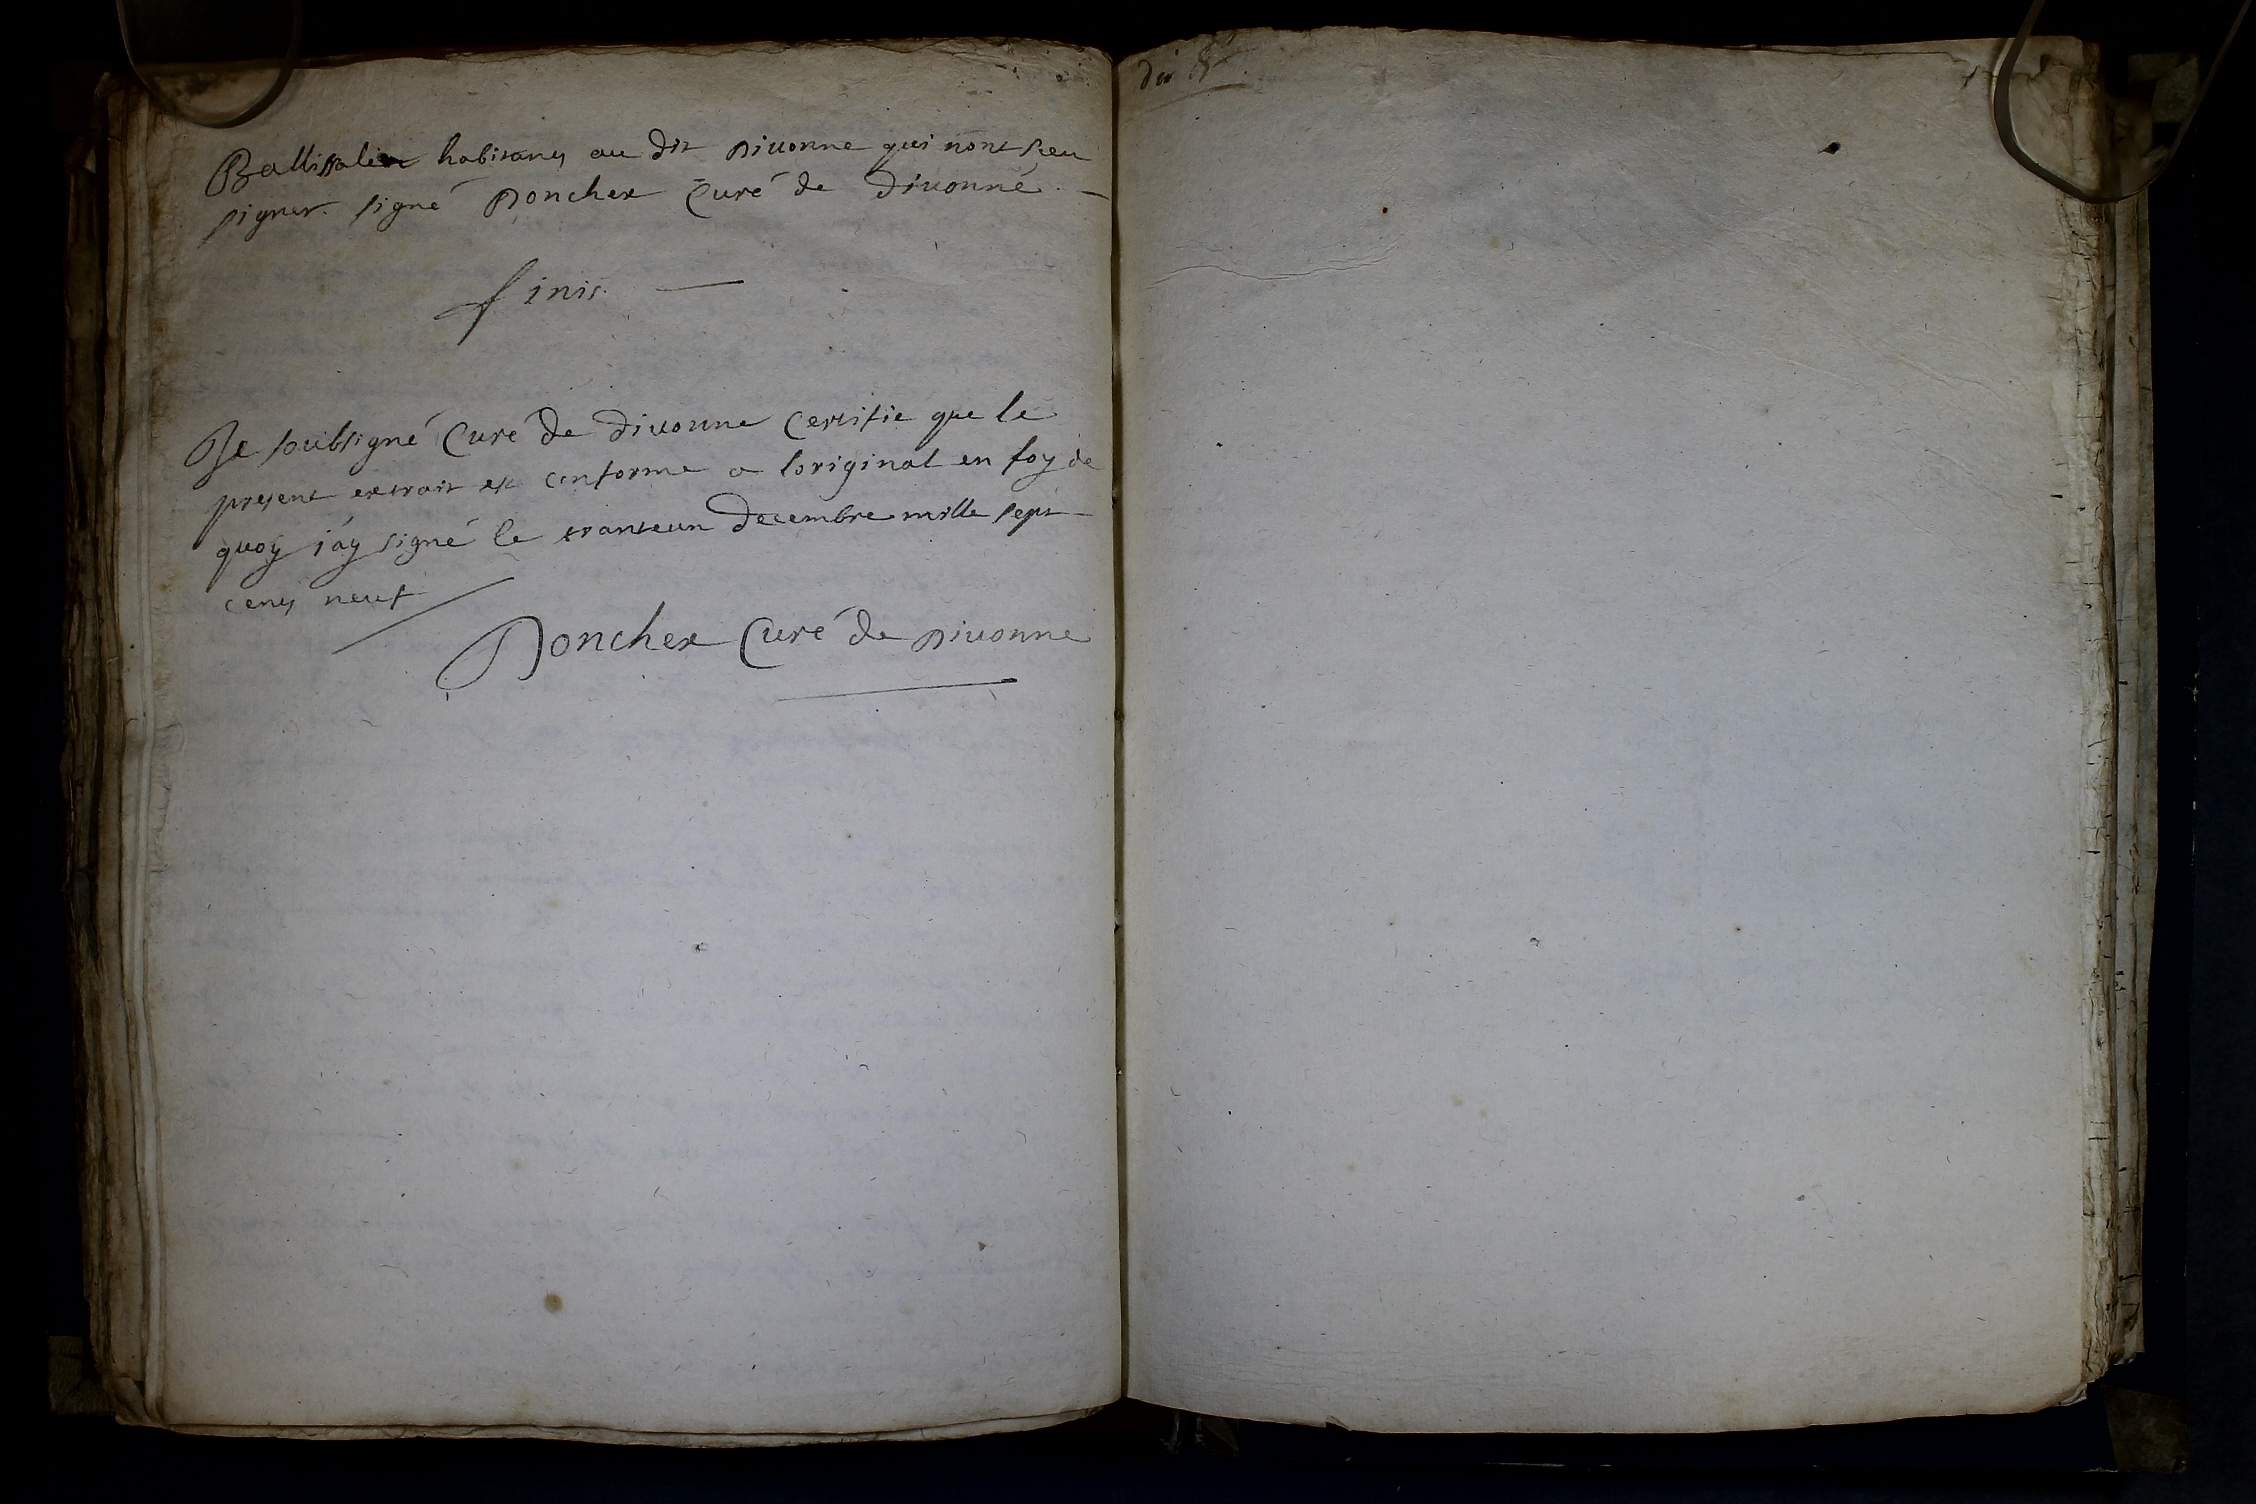 Ballissalin habitans au dit Divonne qui nont sceu
signer. signé Poncher Curé de Divonne
finis.
Je soubsigné Curé de Divonne Certifie que le
present extrait est conforme a loriginal en foy de
quoy jáy signé le tranteun Decembre mille sept
cens neuf
Poncher Curé de Divonne